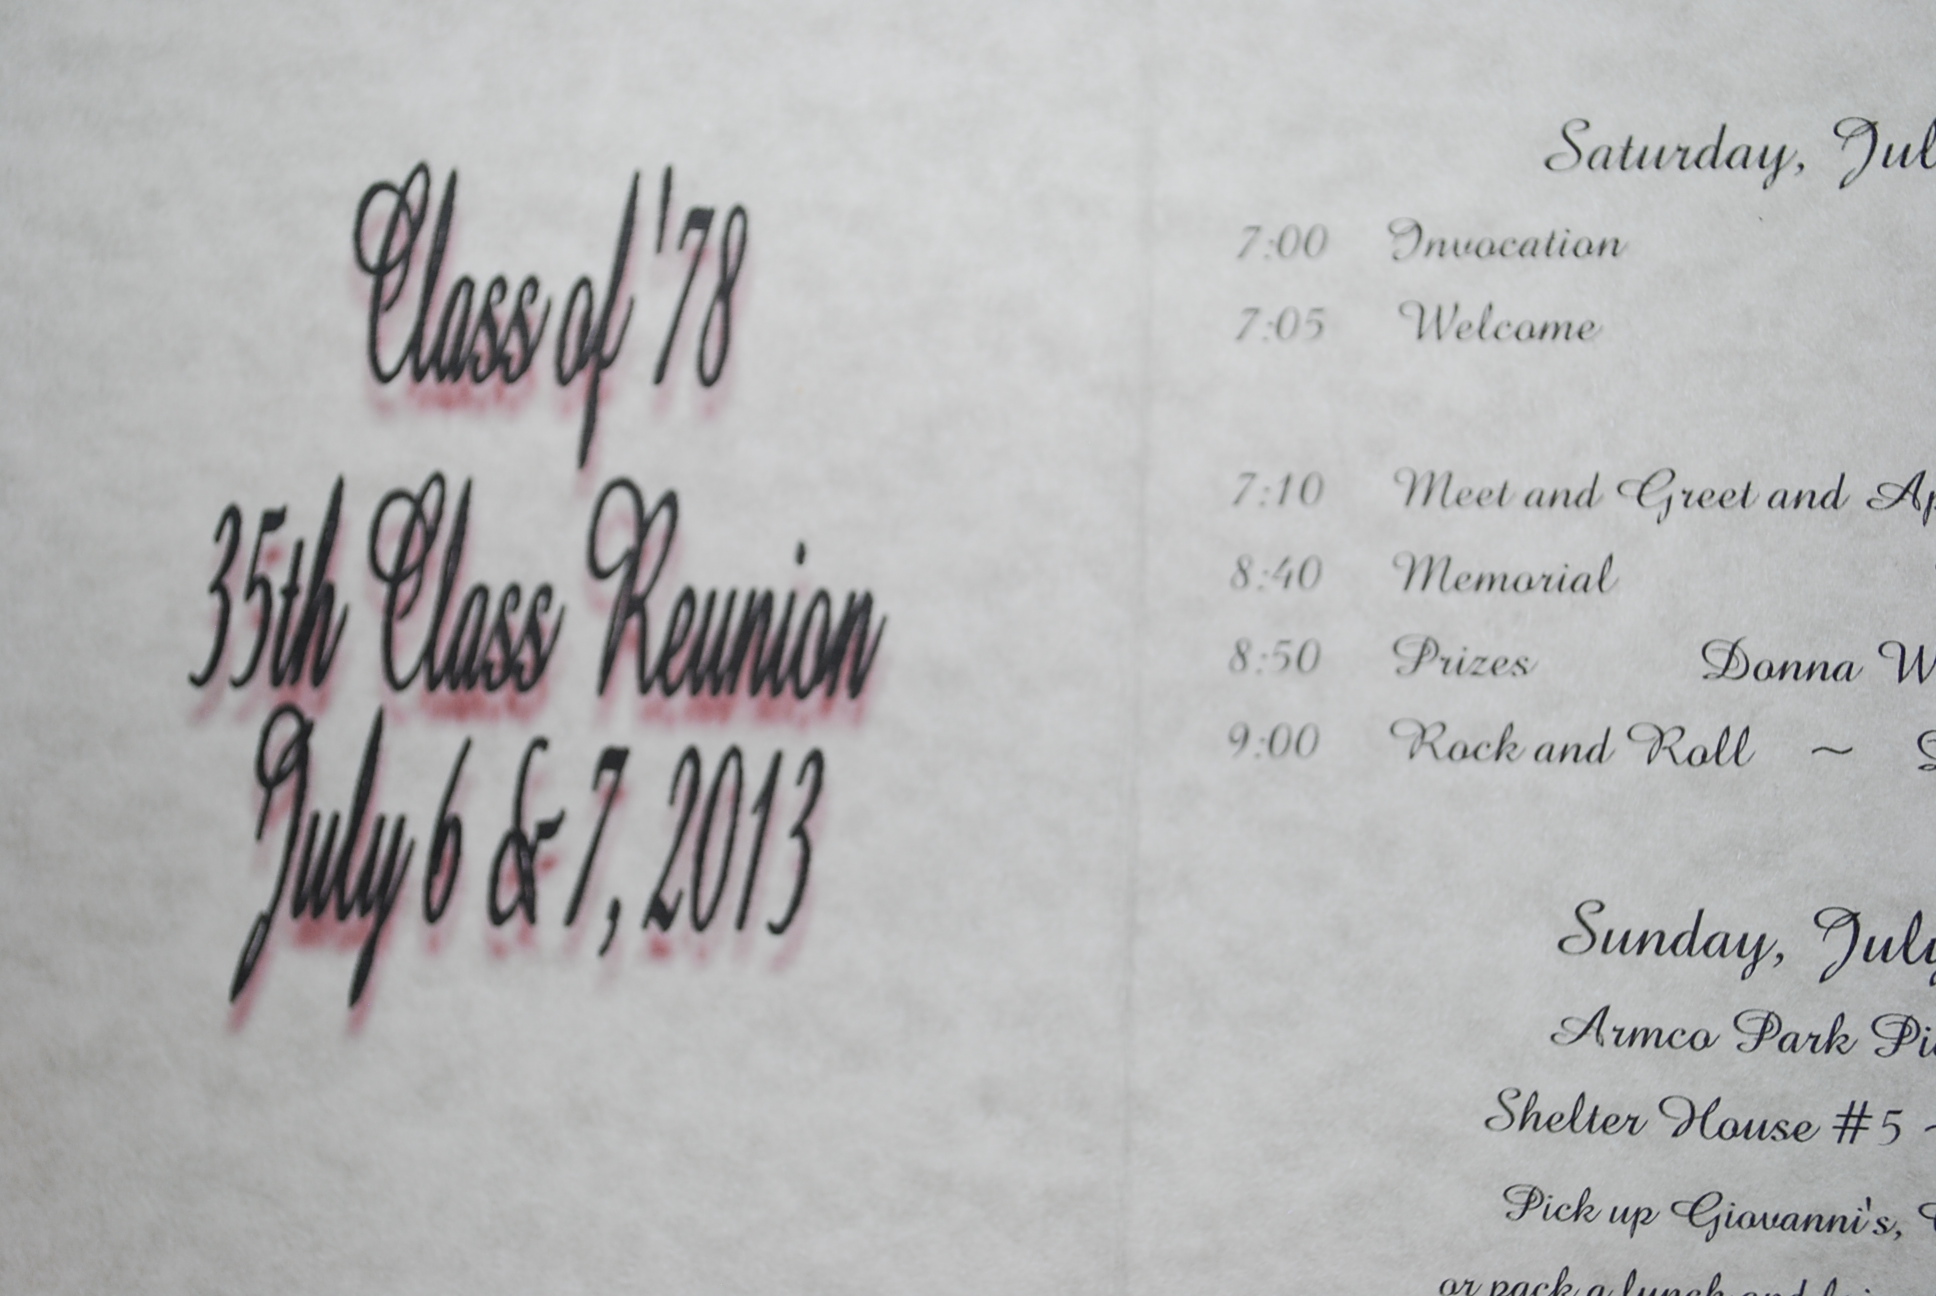 Class of '78
35th Class Reunion
July 6 & 7, 2013
Saturday, Jul
7:00 Invocation
7:05 Welcome
7:10 Meet and Greet and Ap
8:40 Memorial
8:50 Prizes Donna W
9:00 Rock and Roll ~
Sunday, July
Armco Park Pi
Shelter House #5 ~
Pick up Giovanni's,
or pack a lunch and